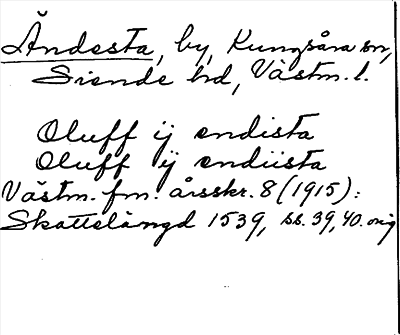 Ändesta, by, Kungsåra sn,
Siende hd, Västm. l.
Oluff ij endista
Oluff ij endiista
Västm. fm. årsskr. 8 (1915):
Skattelängd 1539, ss. 39, 40. orig